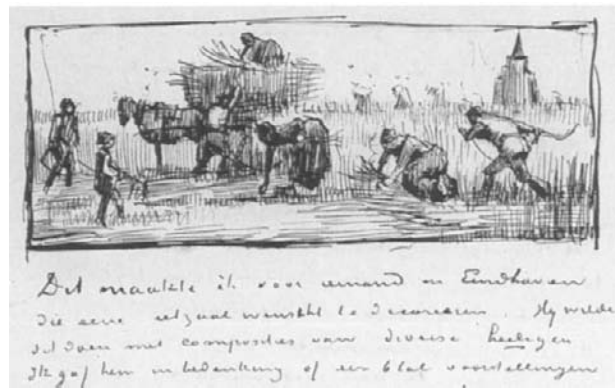 Dit maakte ik voor iemand in Eindhoven
die eene eetzaal wenscht te decoreeren. Hij wilde
dit doen met composities van diverse heeligen
Ik gaf hem in bedenking of een 6tal voorstellingen